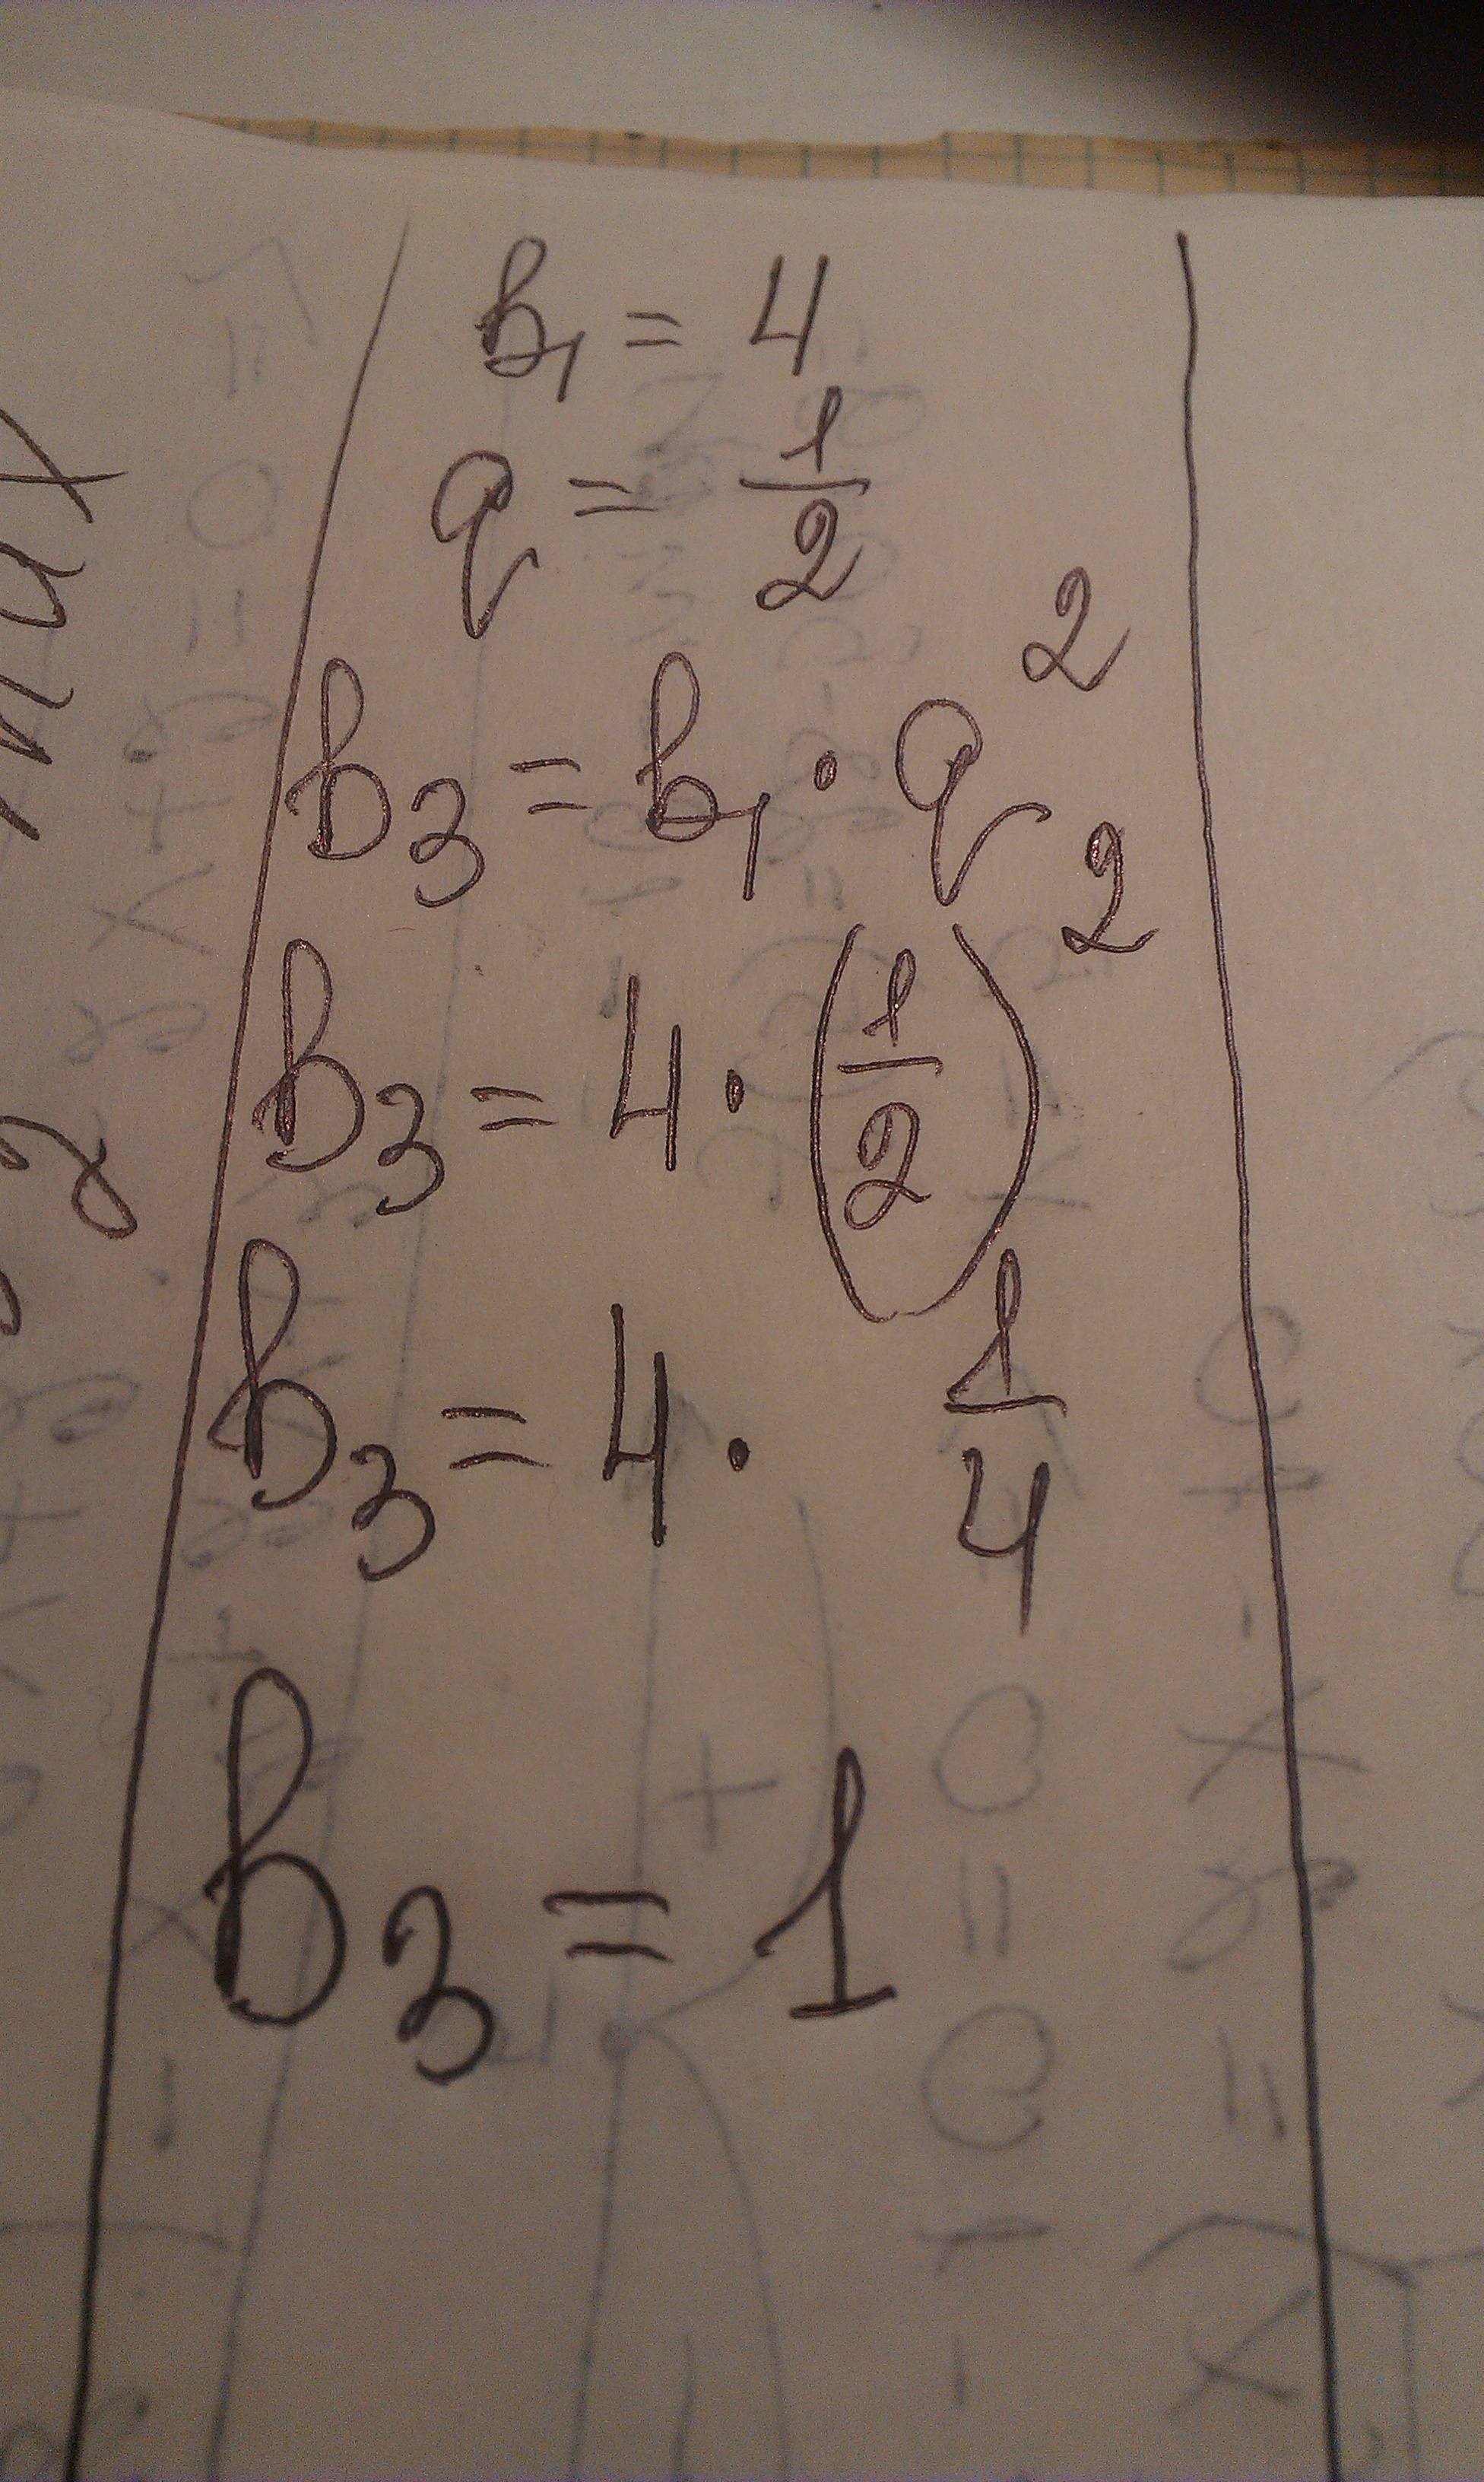 b₁ = 4
q = 1/2
b₃ = b₁ · q²
b₃ = 4 · (1/2)²
b₃ = 4 · 1/4
b₃ = 1
max